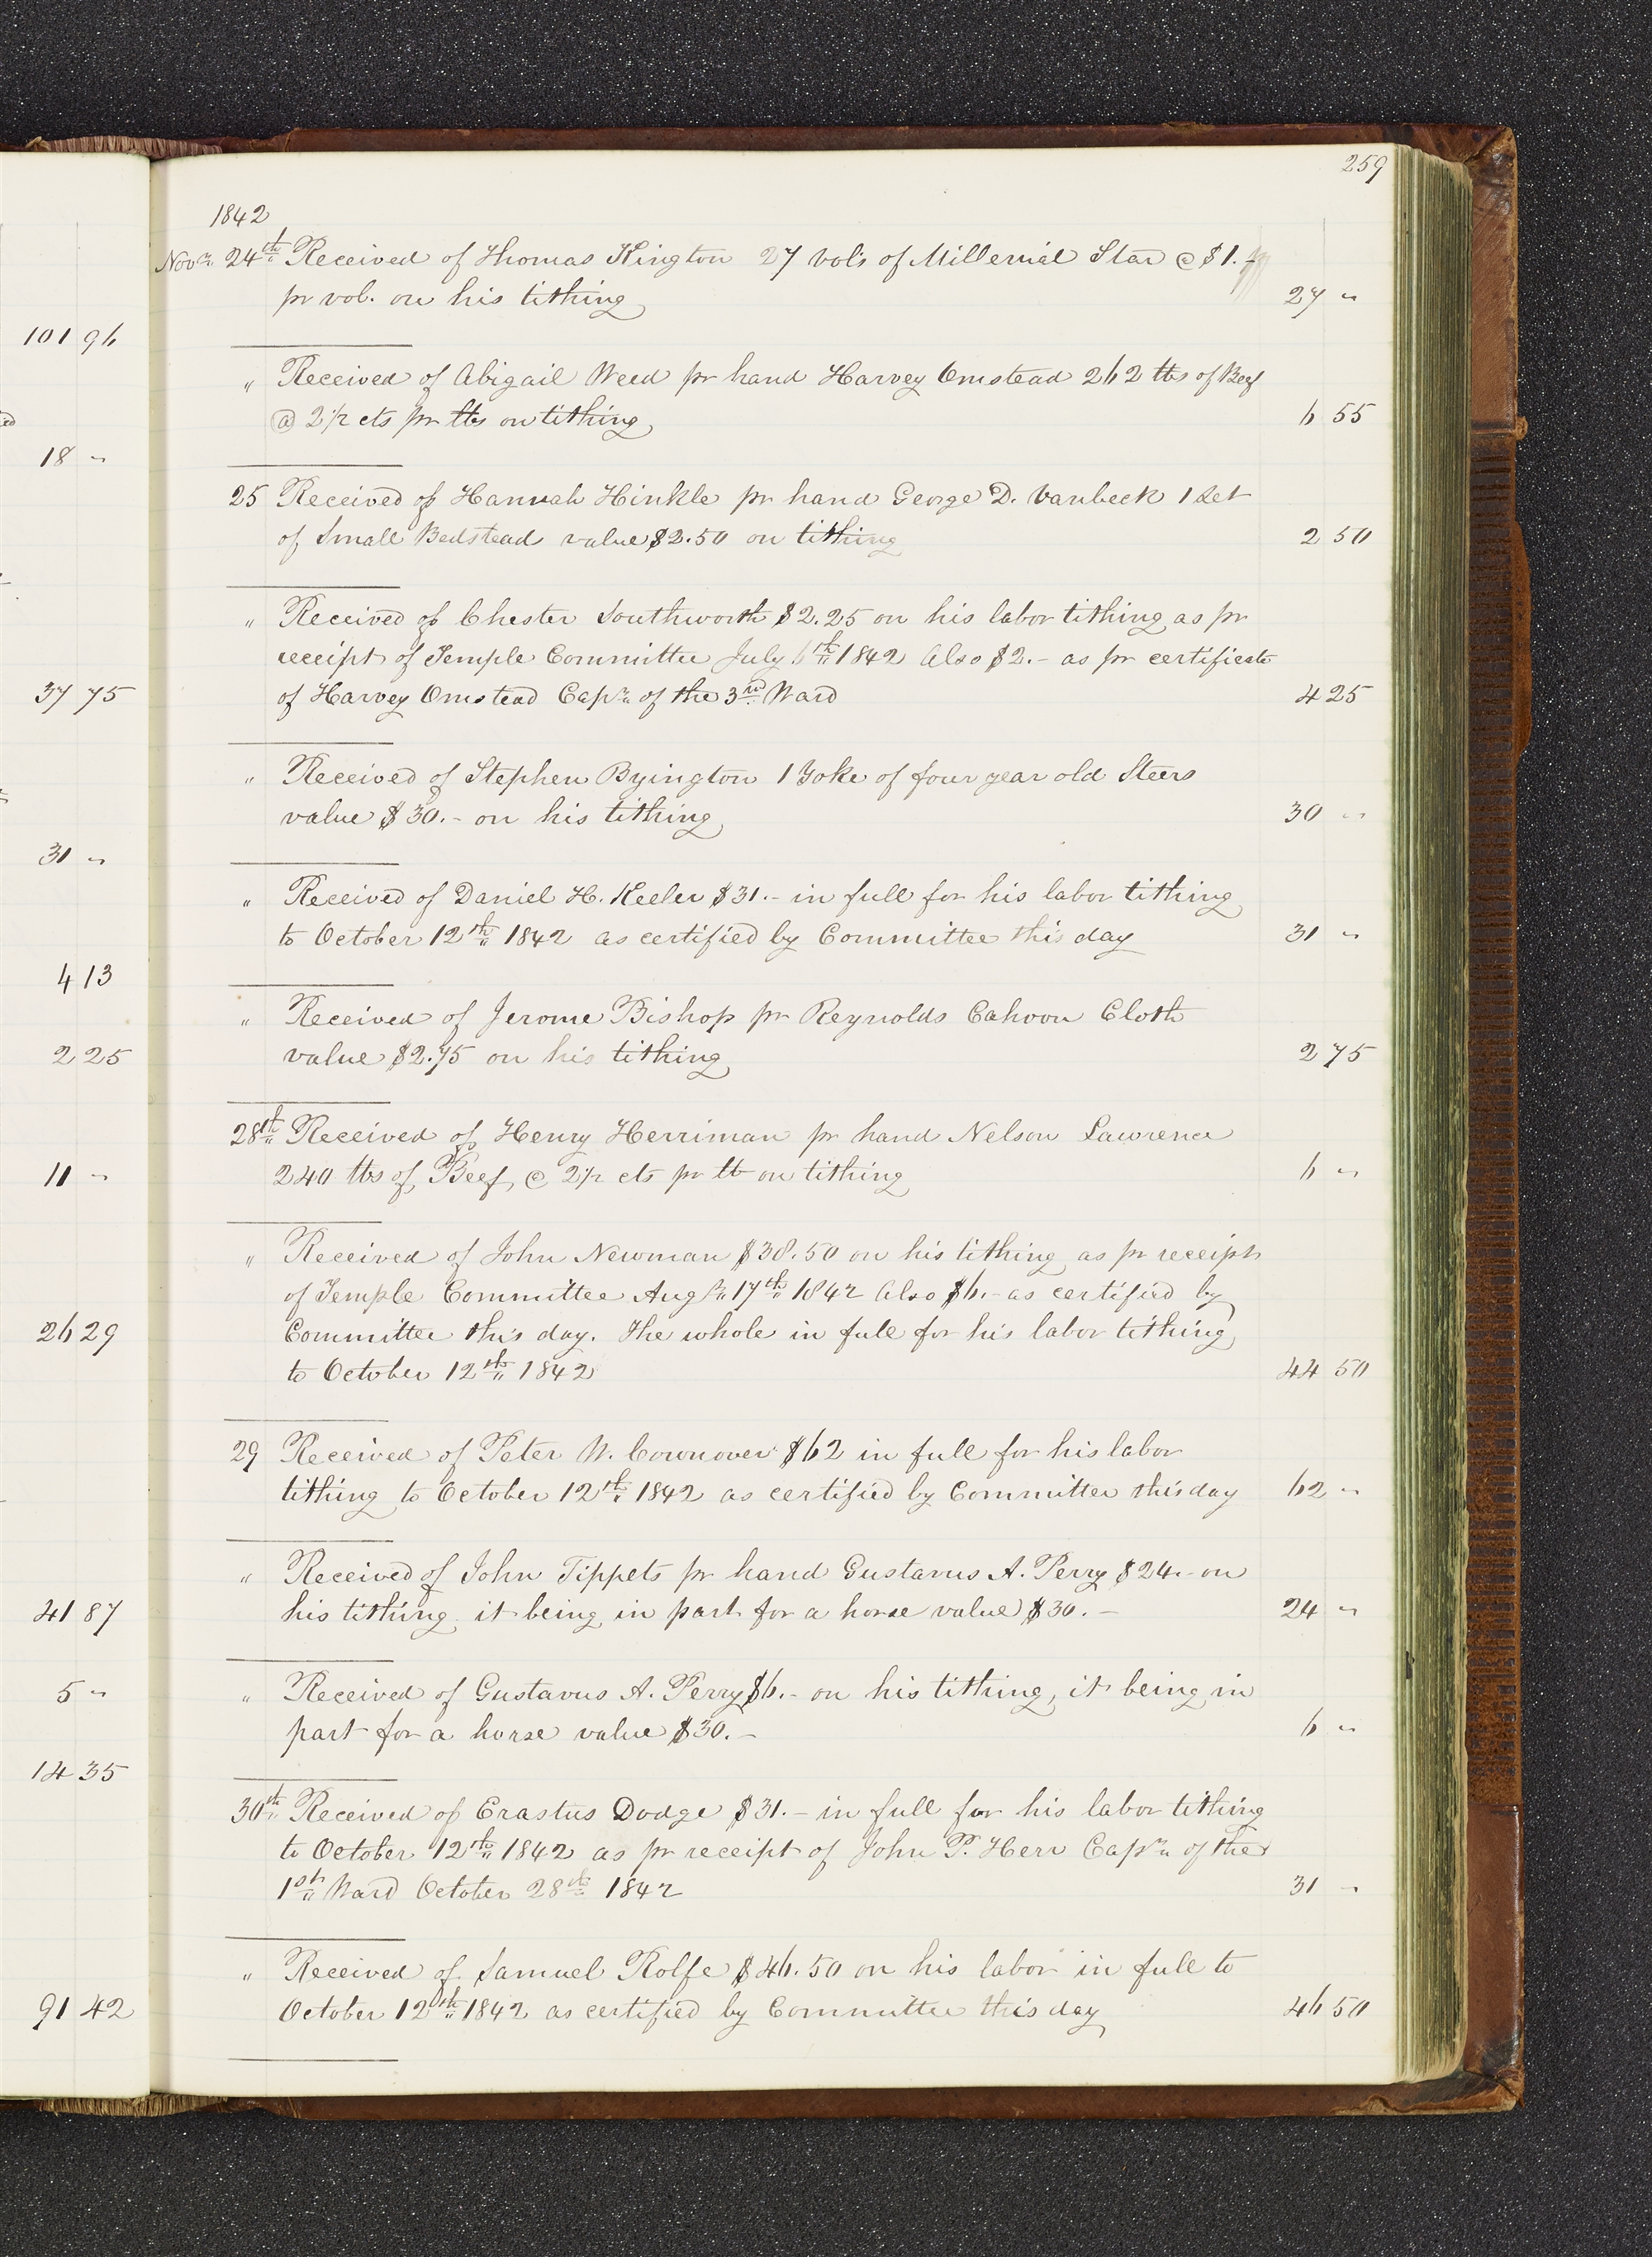 101 96
ed
18 "
37 75
31 "
4 13
2 25
11 "
26 29
41 87
5 "
14 35
91 42
259
1842
Novr. 24th Received of Thomas Kington 27 vols of Millenial Star @ $1.-
pr vol. on his tithing 27 "
" Received of Abigail Weed pr hand Harvey Omstead 262 lbs of Beef
@ 2 1/2 cts pr lbs on tithing 6 55
25 Received of Hannah Hinkle pr hand George D. Vanbeck 1 Set
of Small Bedstead value $2.50 on tithing 2 50
" Received of Chester Southworth $2.25 on his labor tithing as pr
receipt of Temple Committee July 6th 1842 Also $2.- as pr certificate
of Harvey Omstead Capn. of the 3rd Ward 4 25
" Received of Stephen Byington 1 Yoke of four year old Steers
value $30.- on his tithing 30 "
" Received of Daniel H. Keeler $31.- in full for his labor tithing
to October 12th 1842 as certified by Committee this day 31 "
" Received of Jerome Bishop pr Reynolds Cahoon Cloth
value $2.75 on his tithing 2 75
28th Received of Henry Herriman pr hand Nelson Lawrence
240 lbs of Beef @ 2 1/2 cts pr lb on tithing 6 "
" Received of John Newman $38.50 on his tithing as pr receipt
of Temple Committee Augt. 17th 1842 Also $6.- as certified by
Committee this day. The whole in full for his labor tithing
to October 12th 1842 44 50
29 Received of Peter W. Cownover $62 in full for his labor
tithing to October 12th 1842 as certified by Committee this day 62 "
" Received of John Tippets pr hand Gustavus A. Perry $24.- on
his tithing it being in part for a horse value $30.- 24 "
" Received of Gustavus A. Perry $6.- on his tithing, it being in
part for a horse value $30.- 6 "
30th Received of Erastus Dodge $31.- in full for his labor tithing
to October 12th 1842 as pr receipt of John P. Herr Capn. of the
1st Ward October 28th 1842 31 "
" Received of Samuel Rolfe $46.50 on his labor in full to
October 12th 1842 as certified by Committee this day 46 50